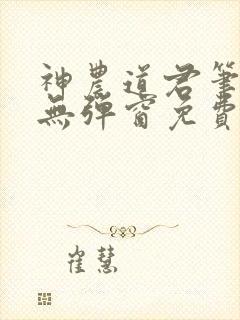 神農道君筆
無彈窗免費
崔慧